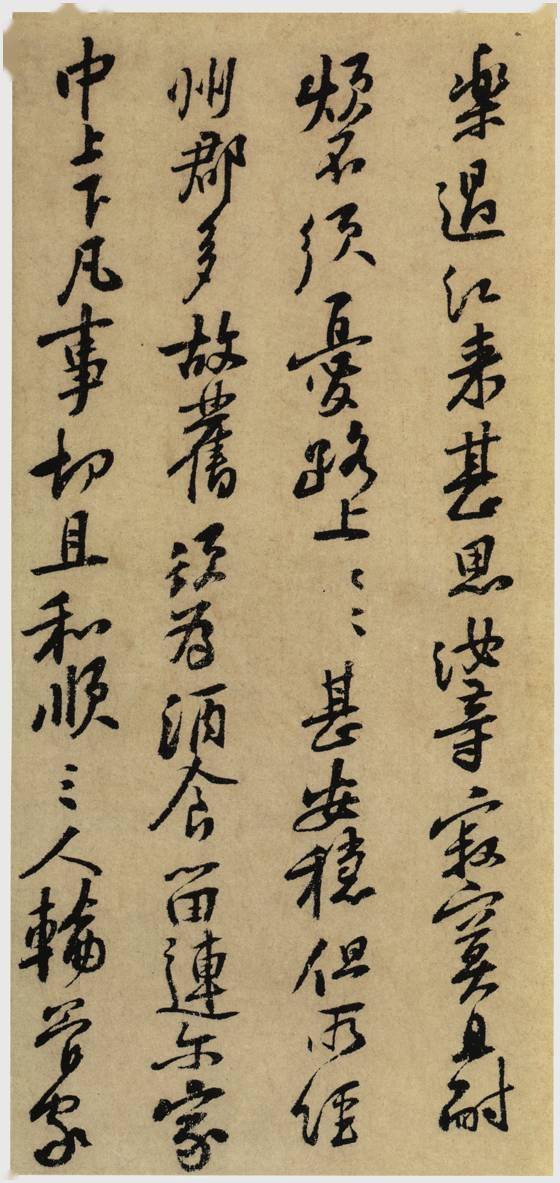 樂過江来甚思汝等寂寞且耐
煩不須憂路上〻甚安穩但所経
州郡多故舊須為酒食留連尔家
中上下凡事切且和順三人輪管家